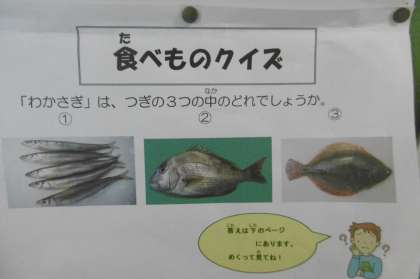 た
食べものクイズ
なか
「わかさぎ」は、つぎの3つの中のどれでしょうか。
① ② ③
こた した
答えは下のページ
にあります。
み
めくって見てね!